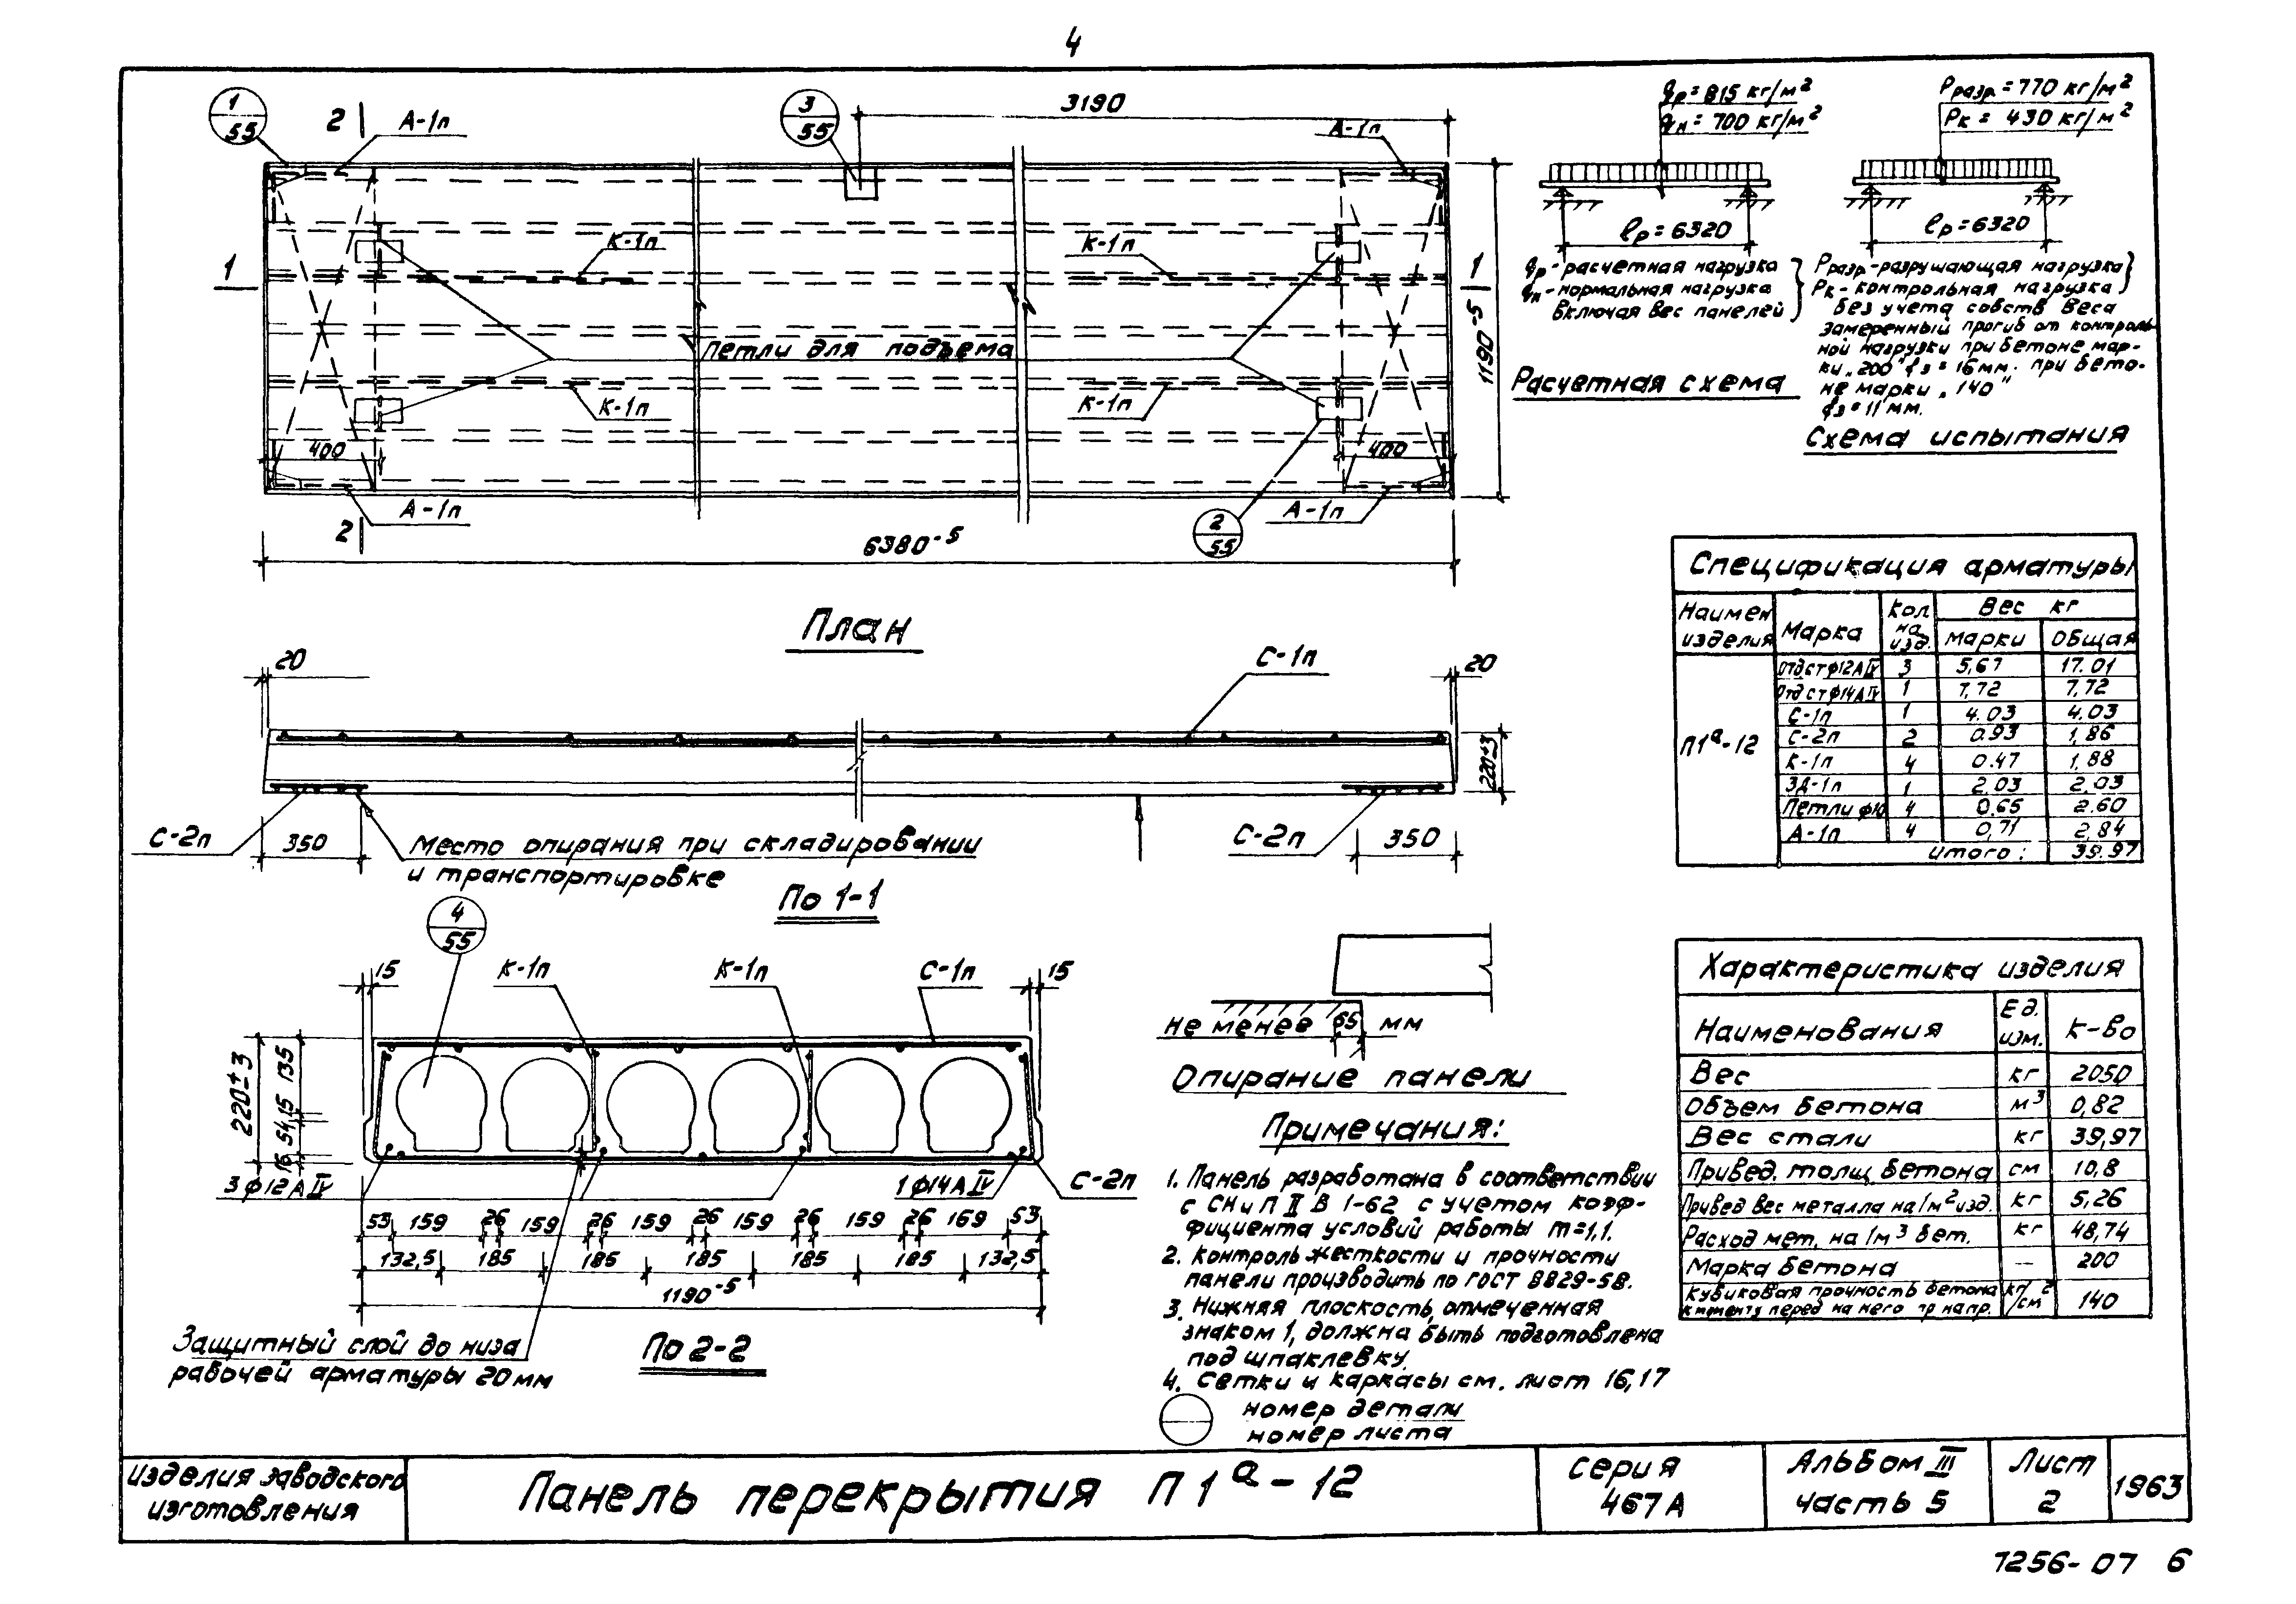 4
1
55
2
А-1п
3
55
3190
А-1п
К-1п
К-1п
1
1
Петли для подъема
К-1п
К-1п
400
400
1190⁻⁵
А-1п
2
2
55
А-1п
6380⁻⁵
План
qр = 815 кг/м²
qн = 700 кг/м²
ℓр = 6320
qр - расчетная нагрузка
qн - нормальная нагрузка
включая вес панелей
Расчетная схема
Рразр. = 770 кг/м²
Рк = 430 кг/м²
ℓр = 6320
Рразр - разрушающая нагрузка
Рк - контрольная нагрузка
без учета собств веса
замеренный прогиб от контроль-
ной нагрузки при бетоне мар-
ки „200" fз = 16мм. при бето-
не марки „140"
fз = 11 мм.
Схема испытания
20
С-1п
20
220±3
С-2п
350
Место опирания при складировании
и транспортировке
С-2п
350
По 1-1
4
55
15
К-1п
К-1п
С-1п
15
220±3
135
15
54
16
3 ф12 А IV
1 ф14 А IV
С-2п
53 159 26 159 26 159 26 159 26 159 26 169 53
132,5 185 185 185 185 185 132,5
1190⁻⁵
Защитный слой до низа
рабочей арматуры 20мм
По 2-2
не менее 65 мм
Опирание панели
Примечания:
1. Панель разработана в соответствии
с СН и П II В 1-62 с учетом коэф-
фициента условий работы m=1,1.
2. Контроль жесткости и прочности
панели производить по ГОСТ 8829-58.
3. Нижняя плоскость, отмеченная
знаком 1, должна быть подготовлена
под шпаклевку.
4. Сетки и каркасы см. лист 16,17
номер детали
номер листа
Спецификация арматуры
Наимен изделия Марка Кол на изд. Вес кг
марки общая
П1ᵃ-12
Отд ст ф12АIV 3 5,67 17.01
Отд ст ф14АIV 1 7,72 7,72
С-1п 1 4.03 4.03
С-2п 2 0.93 1,86
К-1п 4 0.47 1,88
ЗД-1п 1 2.03 2,03
Петли ф10 4 0.65 2.60
А-1п 4 0,71 2,84
Итого: 39.97
Характеристика изделия
Наименования Ед. изм. К-во
Вес кг 2050
Объем бетона м³ 0,82
Вес стали кг 39,97
Привед. толщ. бетона см 10,8
Привед вес металла на 1м² изд. кг 5,26
Расход мет. на 1м³ бет. кг 48,74
Марка бетона — 200
Кубиковая прочность бетона кг/см² 140
к моменту перед на него пр напр.
Изделия заводского
изготовления
Панель перекрытия П 1ᵃ - 12
серия
467А
Альбом III
часть 5
Лист
2
1963
7256-07 6